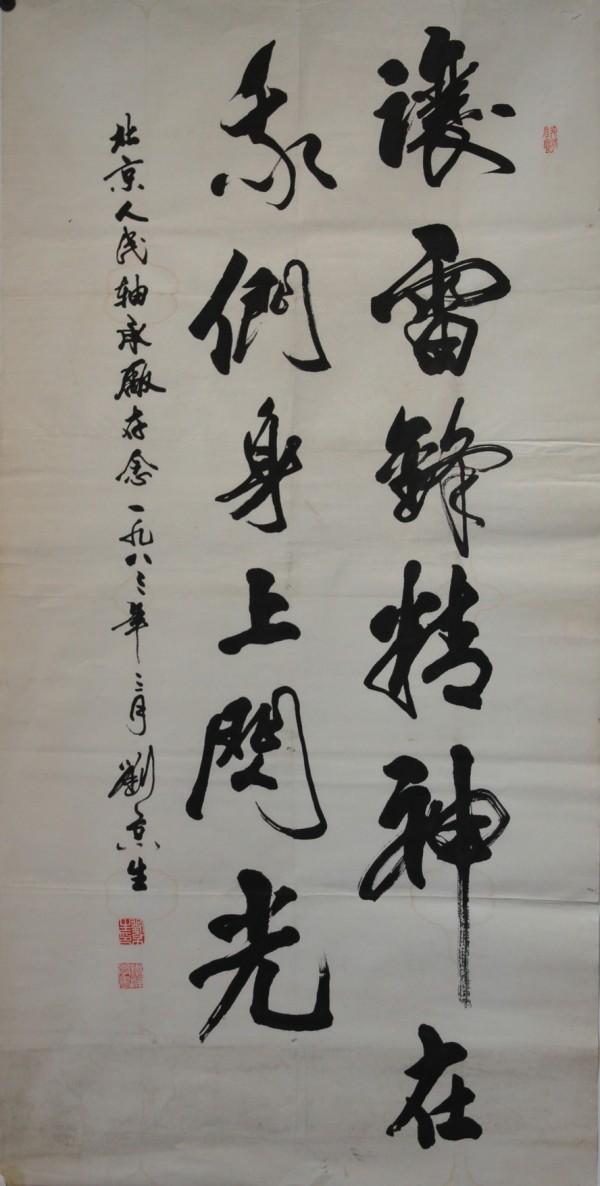 讓雷鋒精神在
我們身上閃光
北京人民轴承廠存念一九八三年三月劉京生